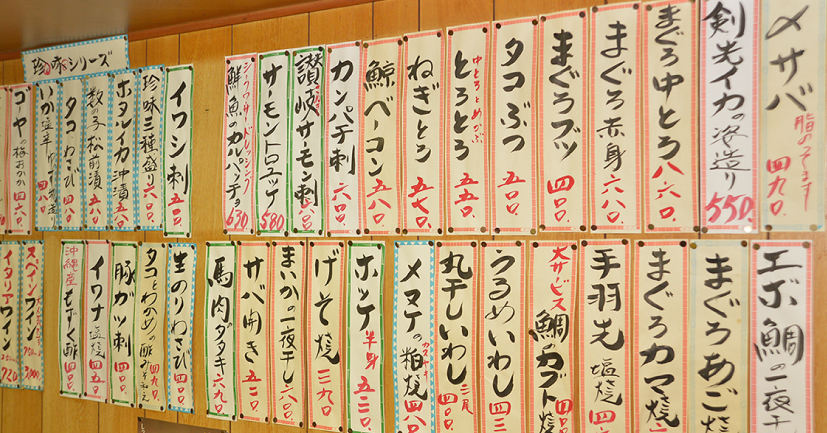 〆サバ 脂のってます 四九〇.
剣先イカの姿造り 550.
まぐろ中とろ 八六〇.
まぐろ赤身 六八〇.
まぐろブツ 四〇〇.
タコぶつ 五〇〇.
中とろとめかぶ
とろとろ 五五〇.
ねぎとろ 五七〇.
鯨ベーコン 五八〇.
カンパチ刺 六〇〇.
讃岐サーモン刺 八〇〇.
サーモントロユッケ 580
シークワーサードレッシング
鮮魚のカルパッチョ 630
珍味シリーズ
イワシ刺 五〇〇.
珍味三種盛り 六〇〇.
ホタルイカ沖漬 五八〇.
数の子松前漬 五八〇.
タコわさび 四八〇.
いか塩辛 四八〇.
ゴーヤの梅おかか 四六〇.
エボ鯛の一夜干
まぐろあご焼
まぐろカマ焼
手羽先 塩焼
大サービス
鯛のカブト焼 四〇〇
うるめいわし 四三
丸干しいわし 二尾 四〇〇.
メヌケの粕焼 四八〇.
ホッケ 半身 五二〇.
げそ焼 三九〇.
まいかの一夜干し 六八〇.
サバ開き 五二〇.
馬肉のタタキ 六九〇.
生のりわさび 四〇〇.
タコとわかめの酢みそあえ 四九〇.
豚ガツ刺 四〇〇.
イワナ塩焼 四五〇.
沖縄産 もずく酢 四〇〇.
スペインワイン
イタリアワイン 720